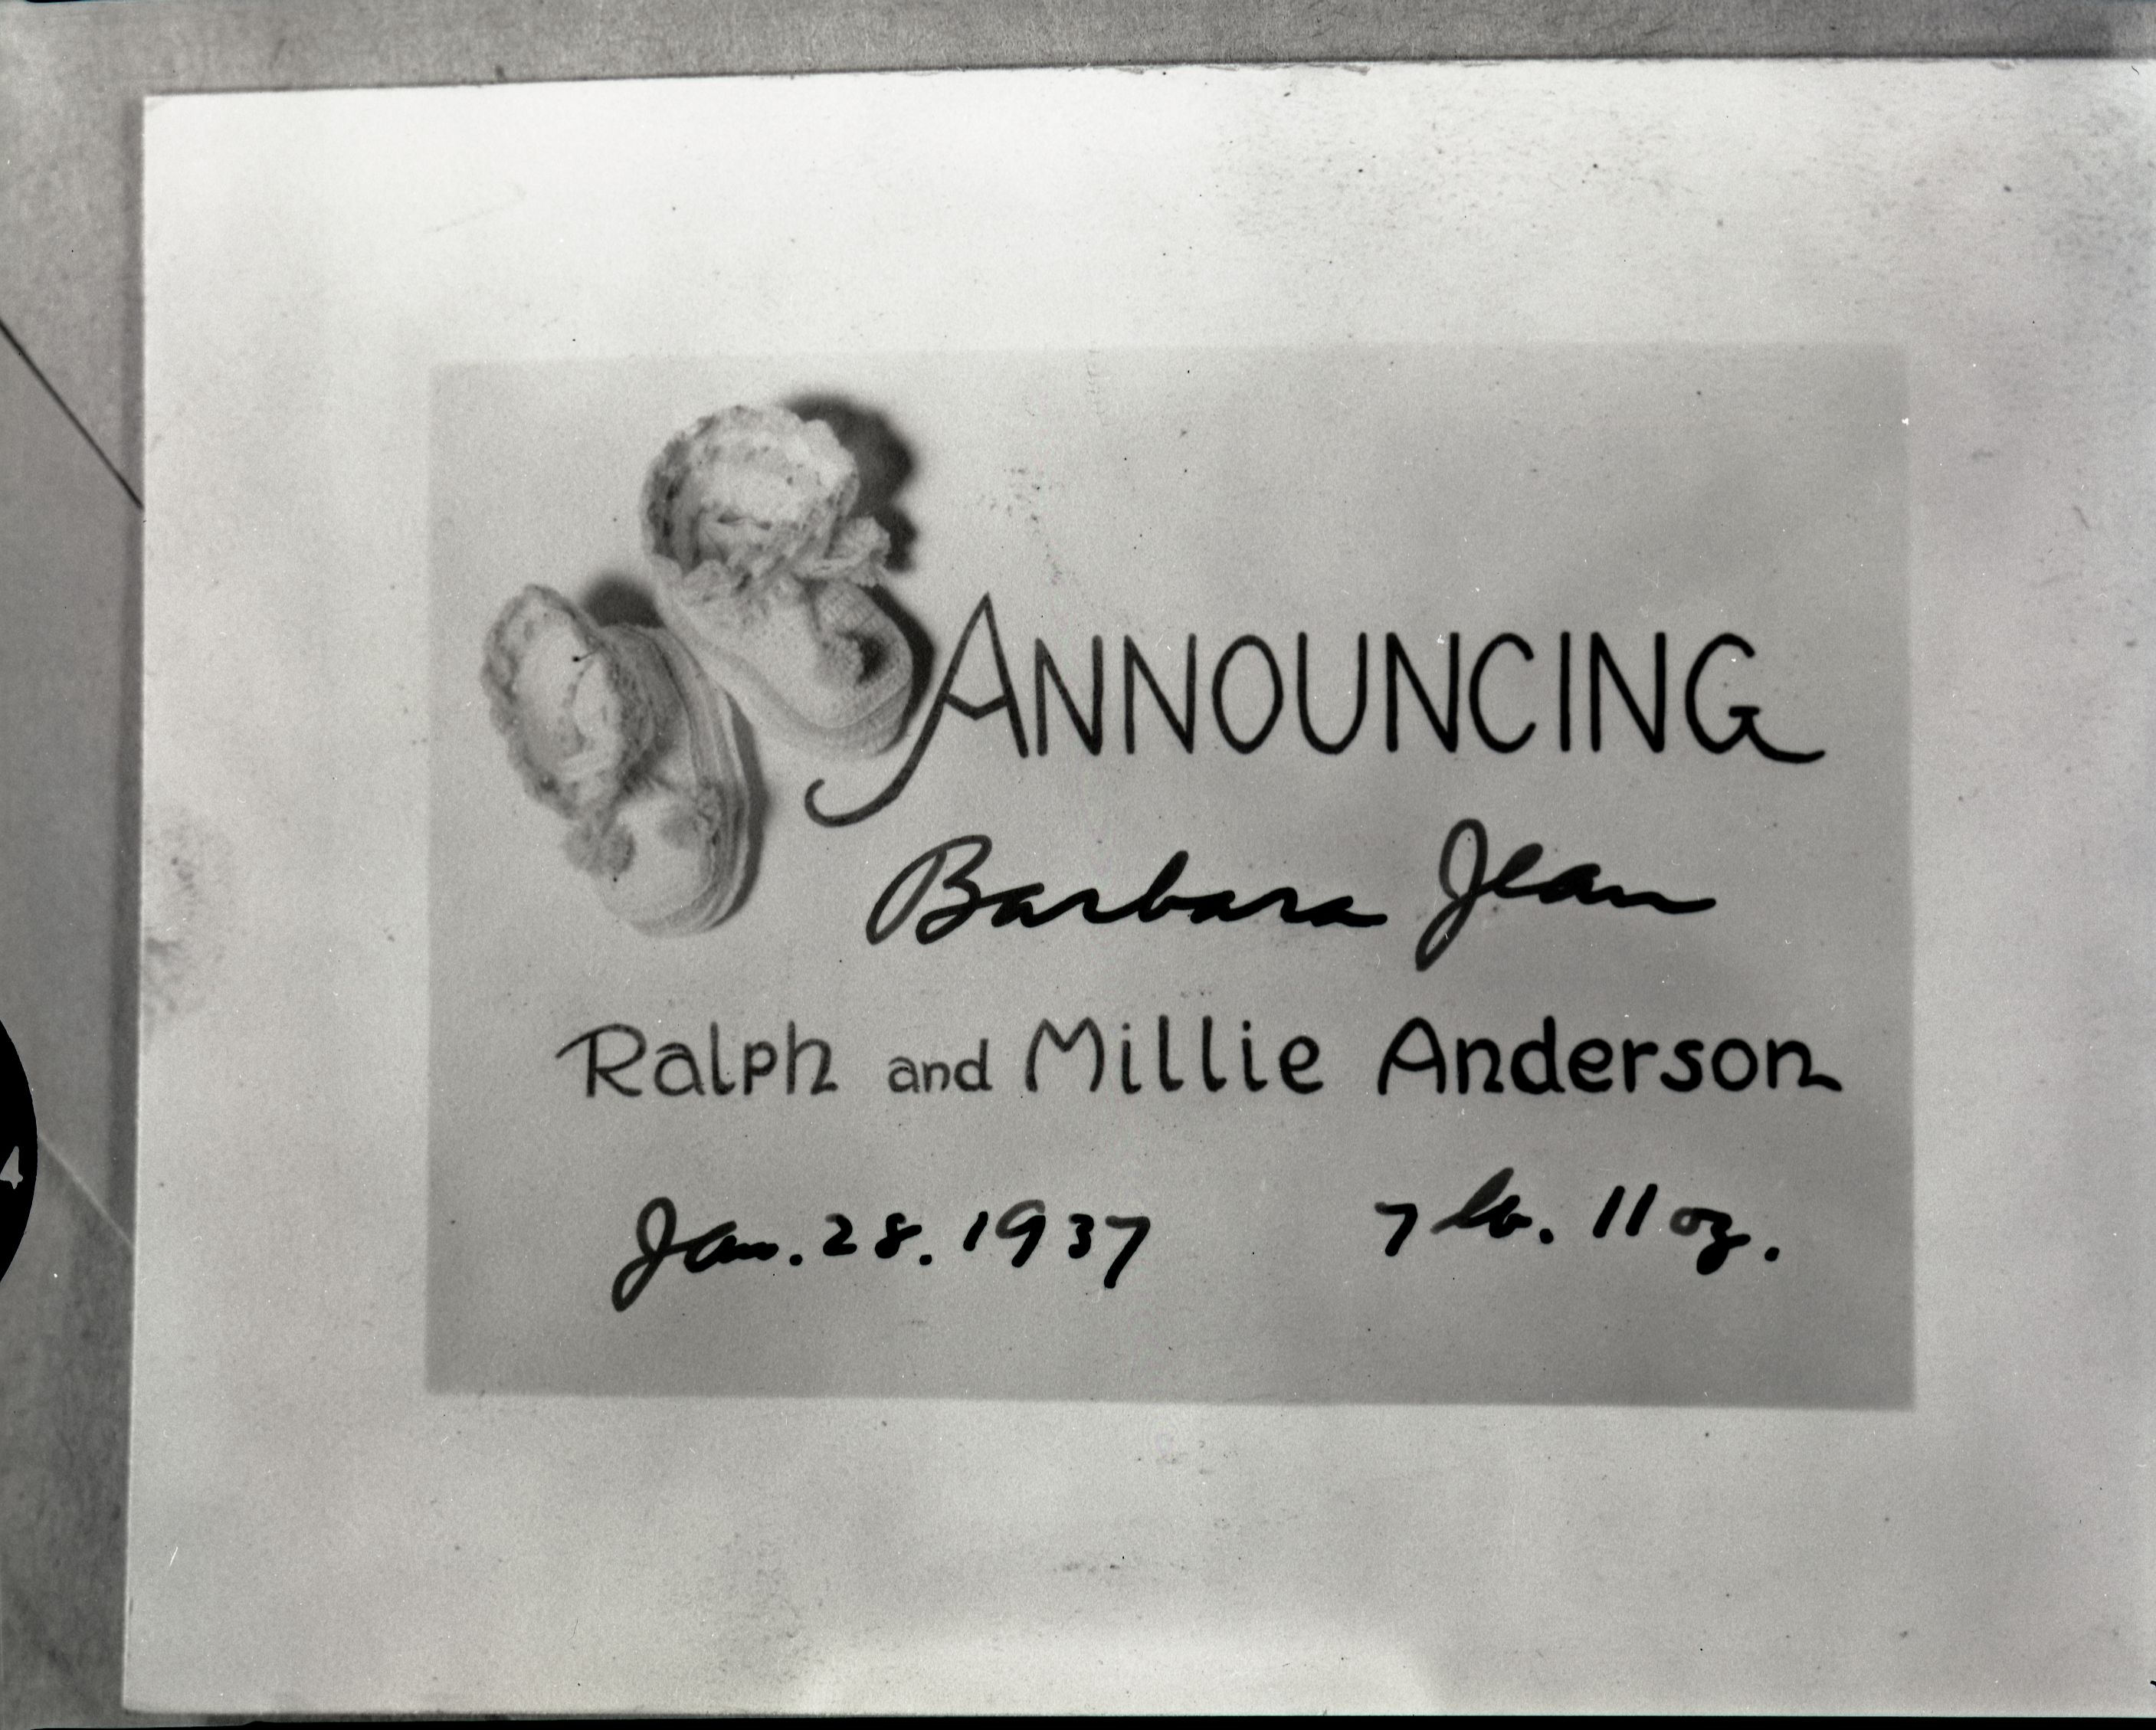 ANNOUNCING
Barbara Jean
Ralph and Millie Anderson
Jan. 28. 1937 7 lb. 11 oz.
4